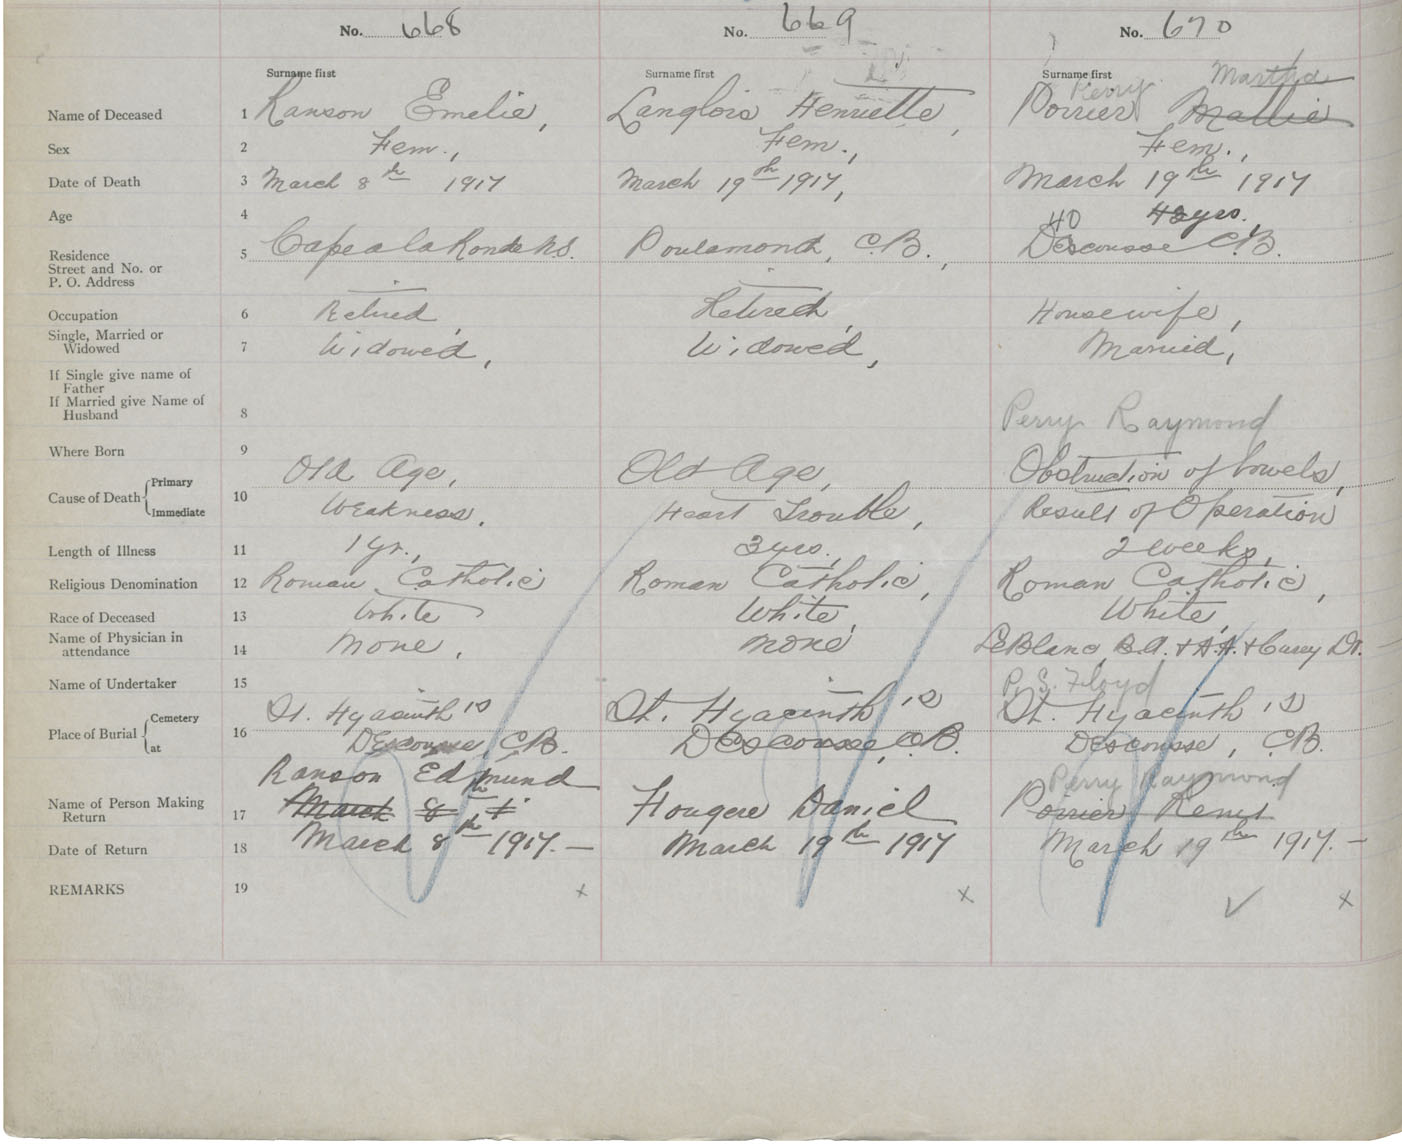 No. 668 No. 669 No. 670
Surname first Surname first Surname first Martha
Perry
Name of Deceased 1 Ranson Emelie, Langlois Henriette, Poirier Mallie
Sex 2 Fem., Fem., Fem.,
Date of Death 3 March 8th 1917 March 19th 1917, March 19th 1917
Age 4 40 42yrs.
Residence 5 Cape a la Ronde N.S. Poulamond, C.B., Descousse C.B.
Street and No. or
P. O. Address
Occupation 6 Retired, Retired, Housewife,
Single, Married or
Widowed 7 Widowed, Widowed, Married,
If Single give name of
Father
If Married give Name of
Husband 8 Perry Raymond
Where Born 9
Cause of Death Primary Old Age, Old Age, Obstruction of bowels,
10 Immediate Weakness, Heart Trouble, Result of Operation
Length of Illness 11 1 yr., 3 yrs., 2 weeks,
Religious Denomination 12 Roman Catholic Roman Catholic, Roman Catholic,
Race of Deceased 13 White White, White,
Name of Physician in
attendance 14 None, None LeBlanc, B.A. + A.A. + Carey Dr.
Name of Undertaker 15 P. S. Floyd
Place of Burial Cemetery St. Hyacinth's St. Hyacinth's St. Hyacinth's
16 at Descousse C.B. Descousse, C.B. Descousse, C.B.
Ranson Edmund Perry Raymond
Name of Person Making
Return 17 March 8th Fougere Daniel Poirier Remi
Date of Return 18 March 8th 1917.— March 19th 1917 March 19th 1917.—
REMARKS 19 x x ✓ x